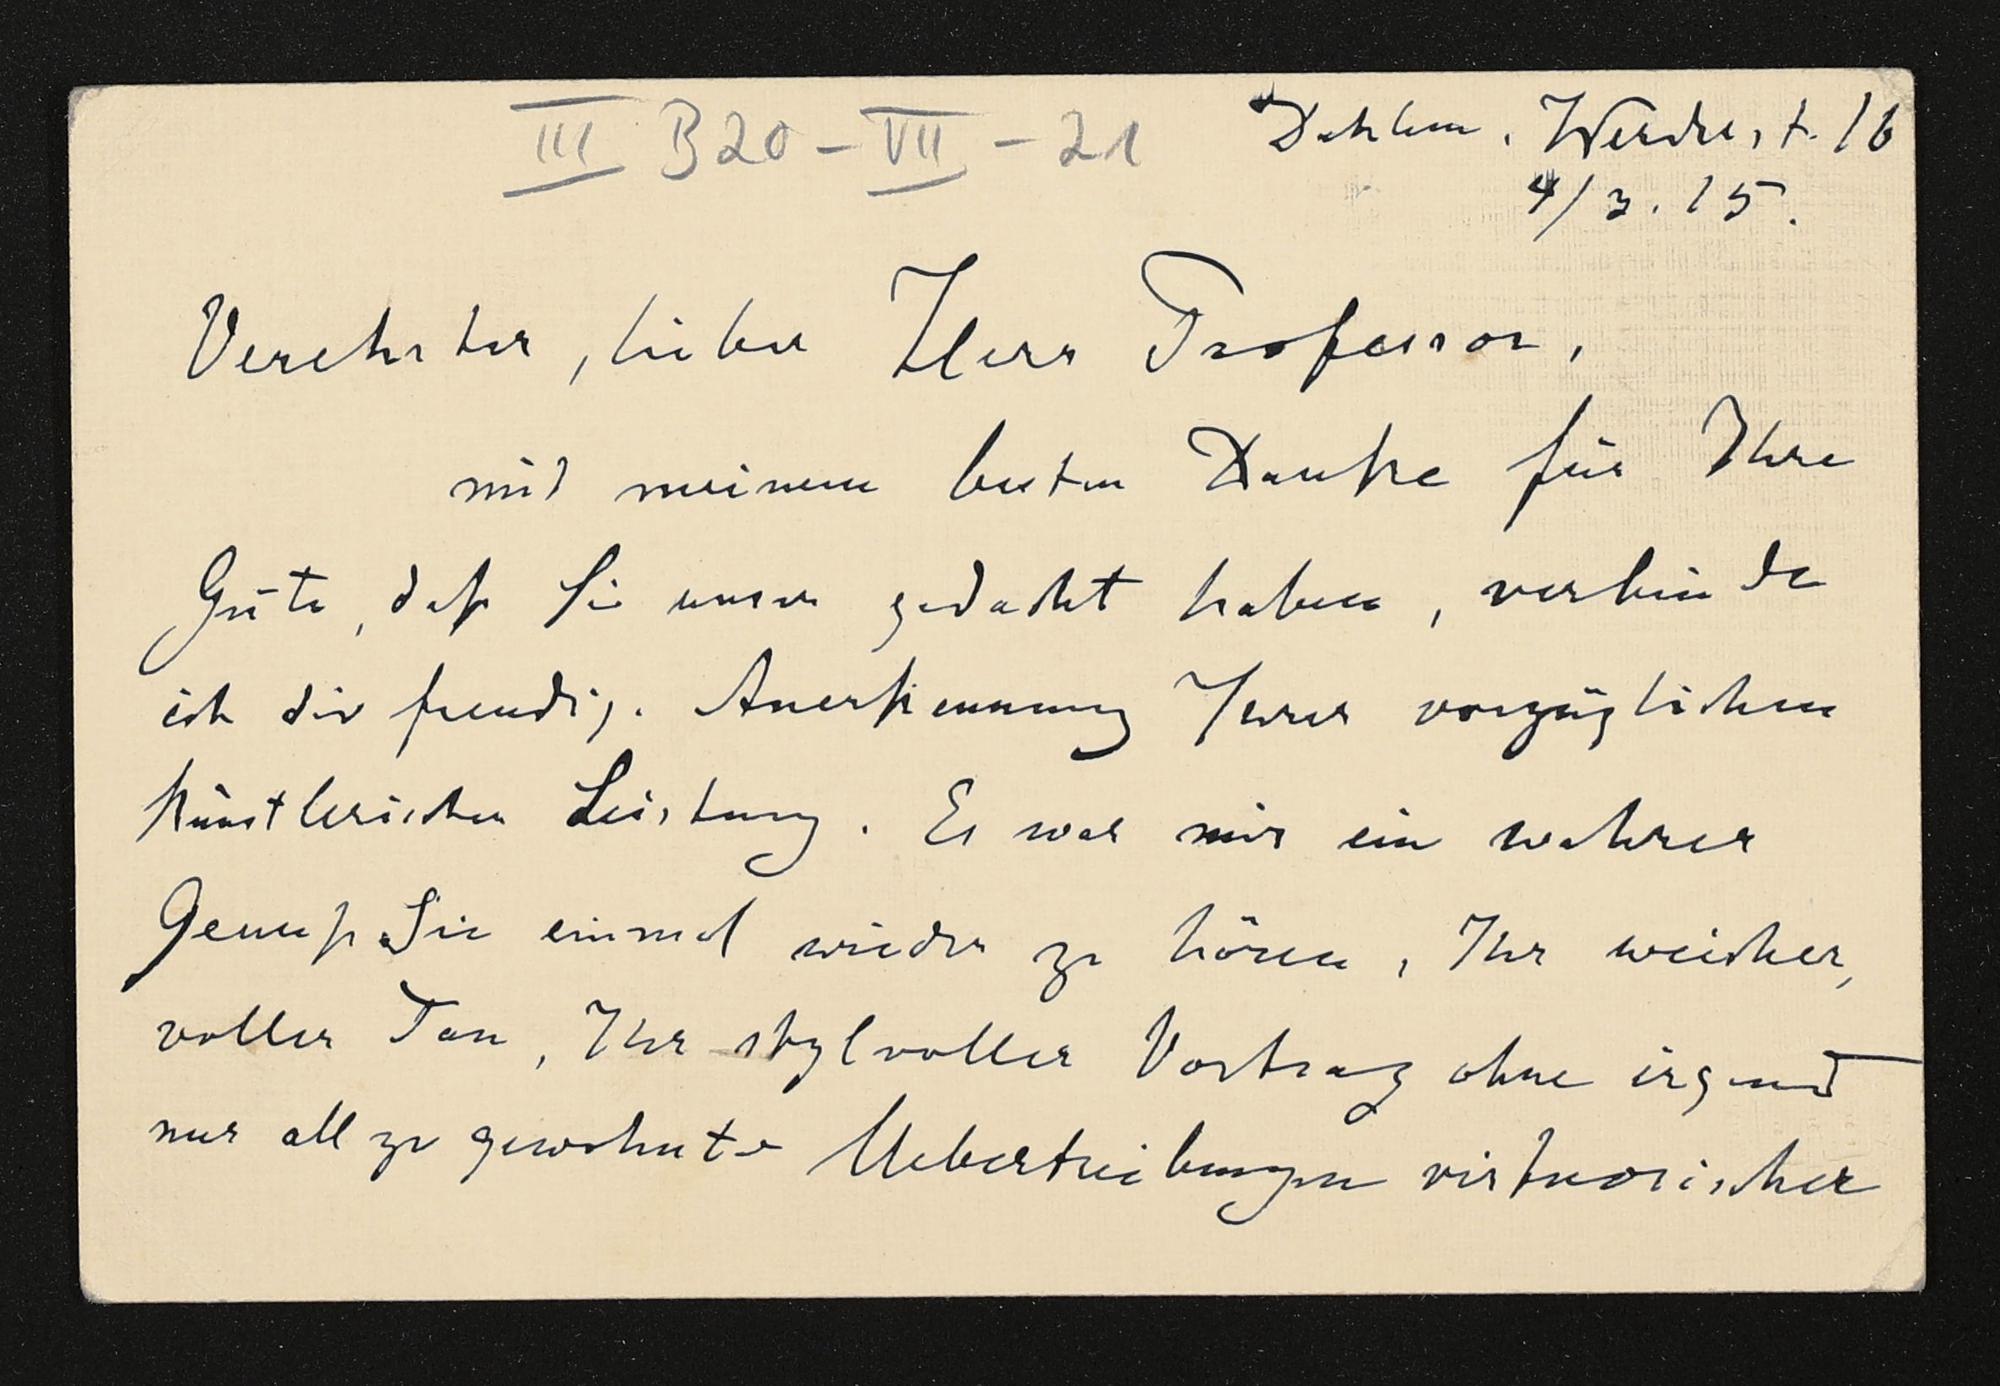 III B 20 - VII - 21
Dahlem, Werderst. 16
4/3. 15.
Verehrter, lieber Herr Professor,
mit meinem besten Danke für Ihre
Güte, daß Sie unser gedacht haben, verbinde
ich die freudig. Anerkennung Ihrer vorzüglichen
künstlerischen Leistung. Es war mir ein wahrer
Genuß Sie einmal wieder zu hören, Ihr weicher,
voller Ton, Ihr stylvoller Vortrag ohne irgend
nur all zu gewohnte Uebertreibungen virtuosischer